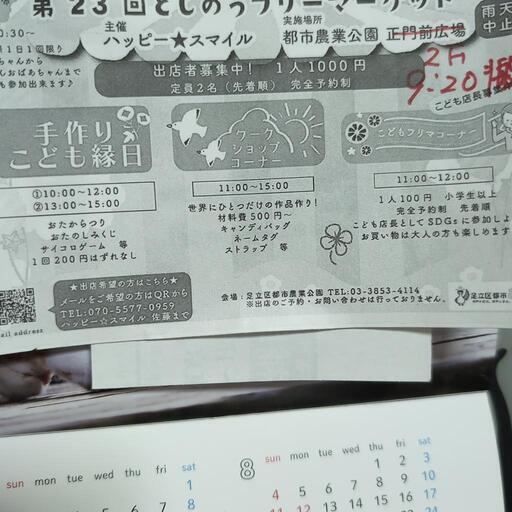 第23回としのうフリーマーケット
主催
ハッピー★スマイル
実施場所
都市農業公園 正門前広場
雨天
中止
0:30~
1日1回限り
ちゃんから
おばあちゃんまで
も参加出来ます♪
出店者募集中! 1人1000円
定員2名(先着順) 完全予約制
9:20
こども店長募集
手作り
こども縁日
①10:00~12:00
②13:00~15:00
おたからつり
おたのしみくじ
サイコロゲーム 等
1回200円はずれなし
ワーク
ショップ
コーナー
11:00~15:00
世界にひとつだけの作品作り!
材料費500円~
キャンディバッグ
ネームタグ
ストラップ 等
こどもフリマコーナー
11:00~12:00
1人100円 小学生以上
完全予約制 先着順
こども店長としてSDGsに参加しよ
お買い物は大人の方も楽しめます
★出店希望の方はこちら★
メールをご希望の方はQRから
TEL:070-5577-0959
ハッピー★スマイル 佐藤まで
ail address
会場:足立区都市農業公園 TEL:03-3853-4114
※出店のご予約・お問い合わせは行っておりません。
足立区都市
sun mon tue wed thu fri sat
1
2 3 4 5 6 7 8
8
sun mon tue wed thu fri sat
1 2 3
4 5 6 7 8 9 10